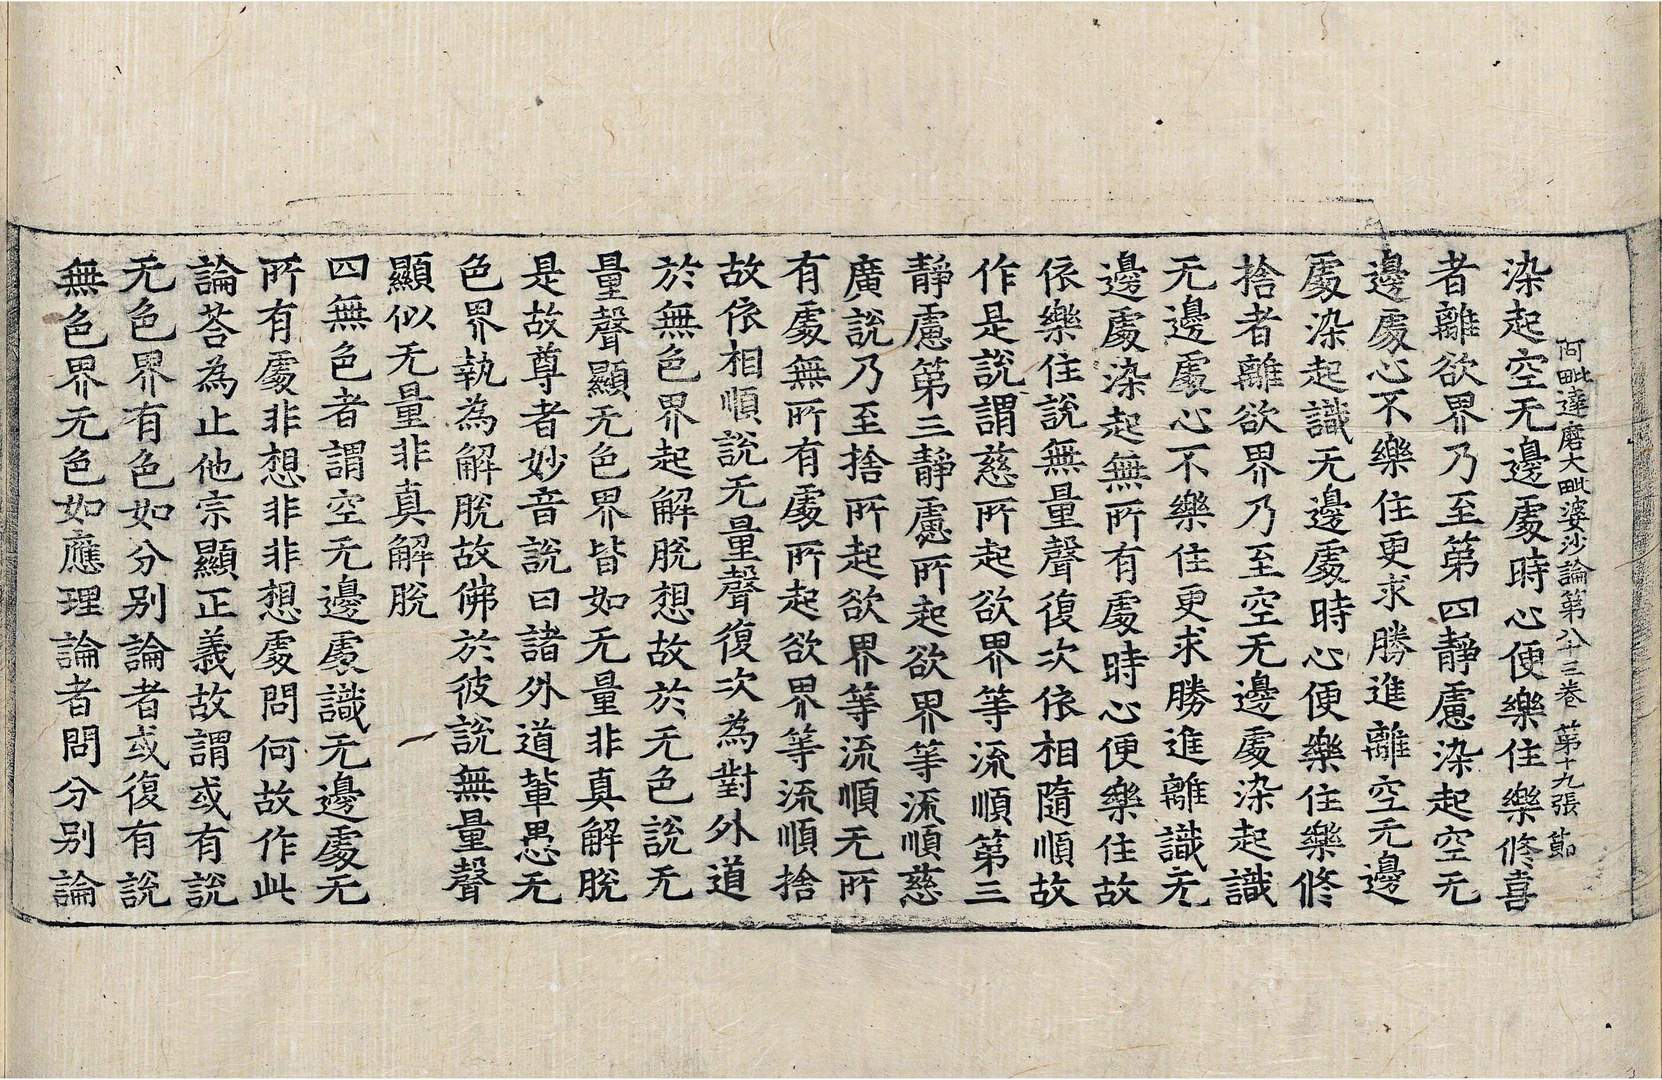 阿毗達磨大毗婆沙論第八十三卷 第十九張 節
染起空无邊處時心便樂住樂修喜
者離欲界乃至第四靜慮染起空无
邊處心不樂住更求勝進離空无邊
處染起識无邊處時心便樂住樂修
捨者離欲界乃至空无邊處染起識
无邊處心不樂住更求勝進離識无
邊處染起無所有處時心便樂住故
依樂住說無量聲復次依相隨順故
作是說謂慈所起欲界等流順第三
靜慮第三靜慮所起欲界等流順慈
廣說乃至捨所起欲界等流順无所
有處無所有處所起欲界等流順捨
故依相順說无量聲復次為對外道
於無色界起解脫想故於无色說无
量聲顯无色界皆如无量非真解脫
是故尊者妙音說曰諸外道輩愚无
色界執為解脫故佛於彼說無量聲
顯似无量非真解脫
四無色者謂空无邊處識无邊處无
所有處非想非非想處問何故作此
論荅為止他宗顯正義故謂或有說
无色界有色如分别論者或復有說
無色界无色如應理論者問分别論